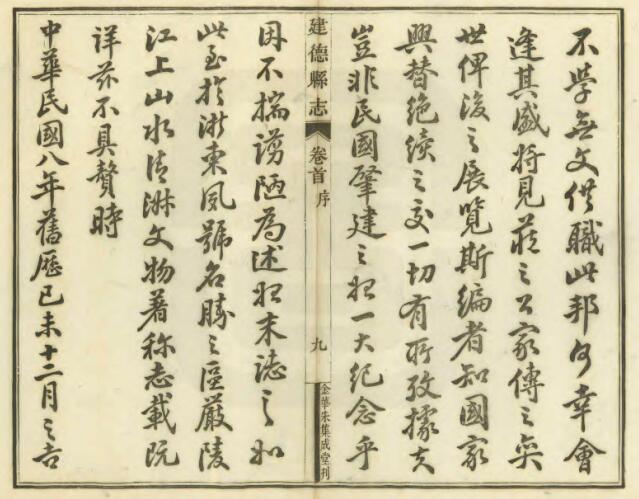 不學無文供職此邦何幸會
逢其盛將見藏之公家傳之奕
世俾後之展覽斯編者知國家
興替絕續之交一切有所考據夫
豈非民國肇建之始一大紀念乎
建德縣志
卷首 序
九
金華朱集成堂刊
因不揣謭陋為述始末誌之如
此至於浙東風號名勝之區嚴陵
江上山水清淋文物著称志載既
詳茲不具贅時
中華民國八年舊曆己未十二月之吉